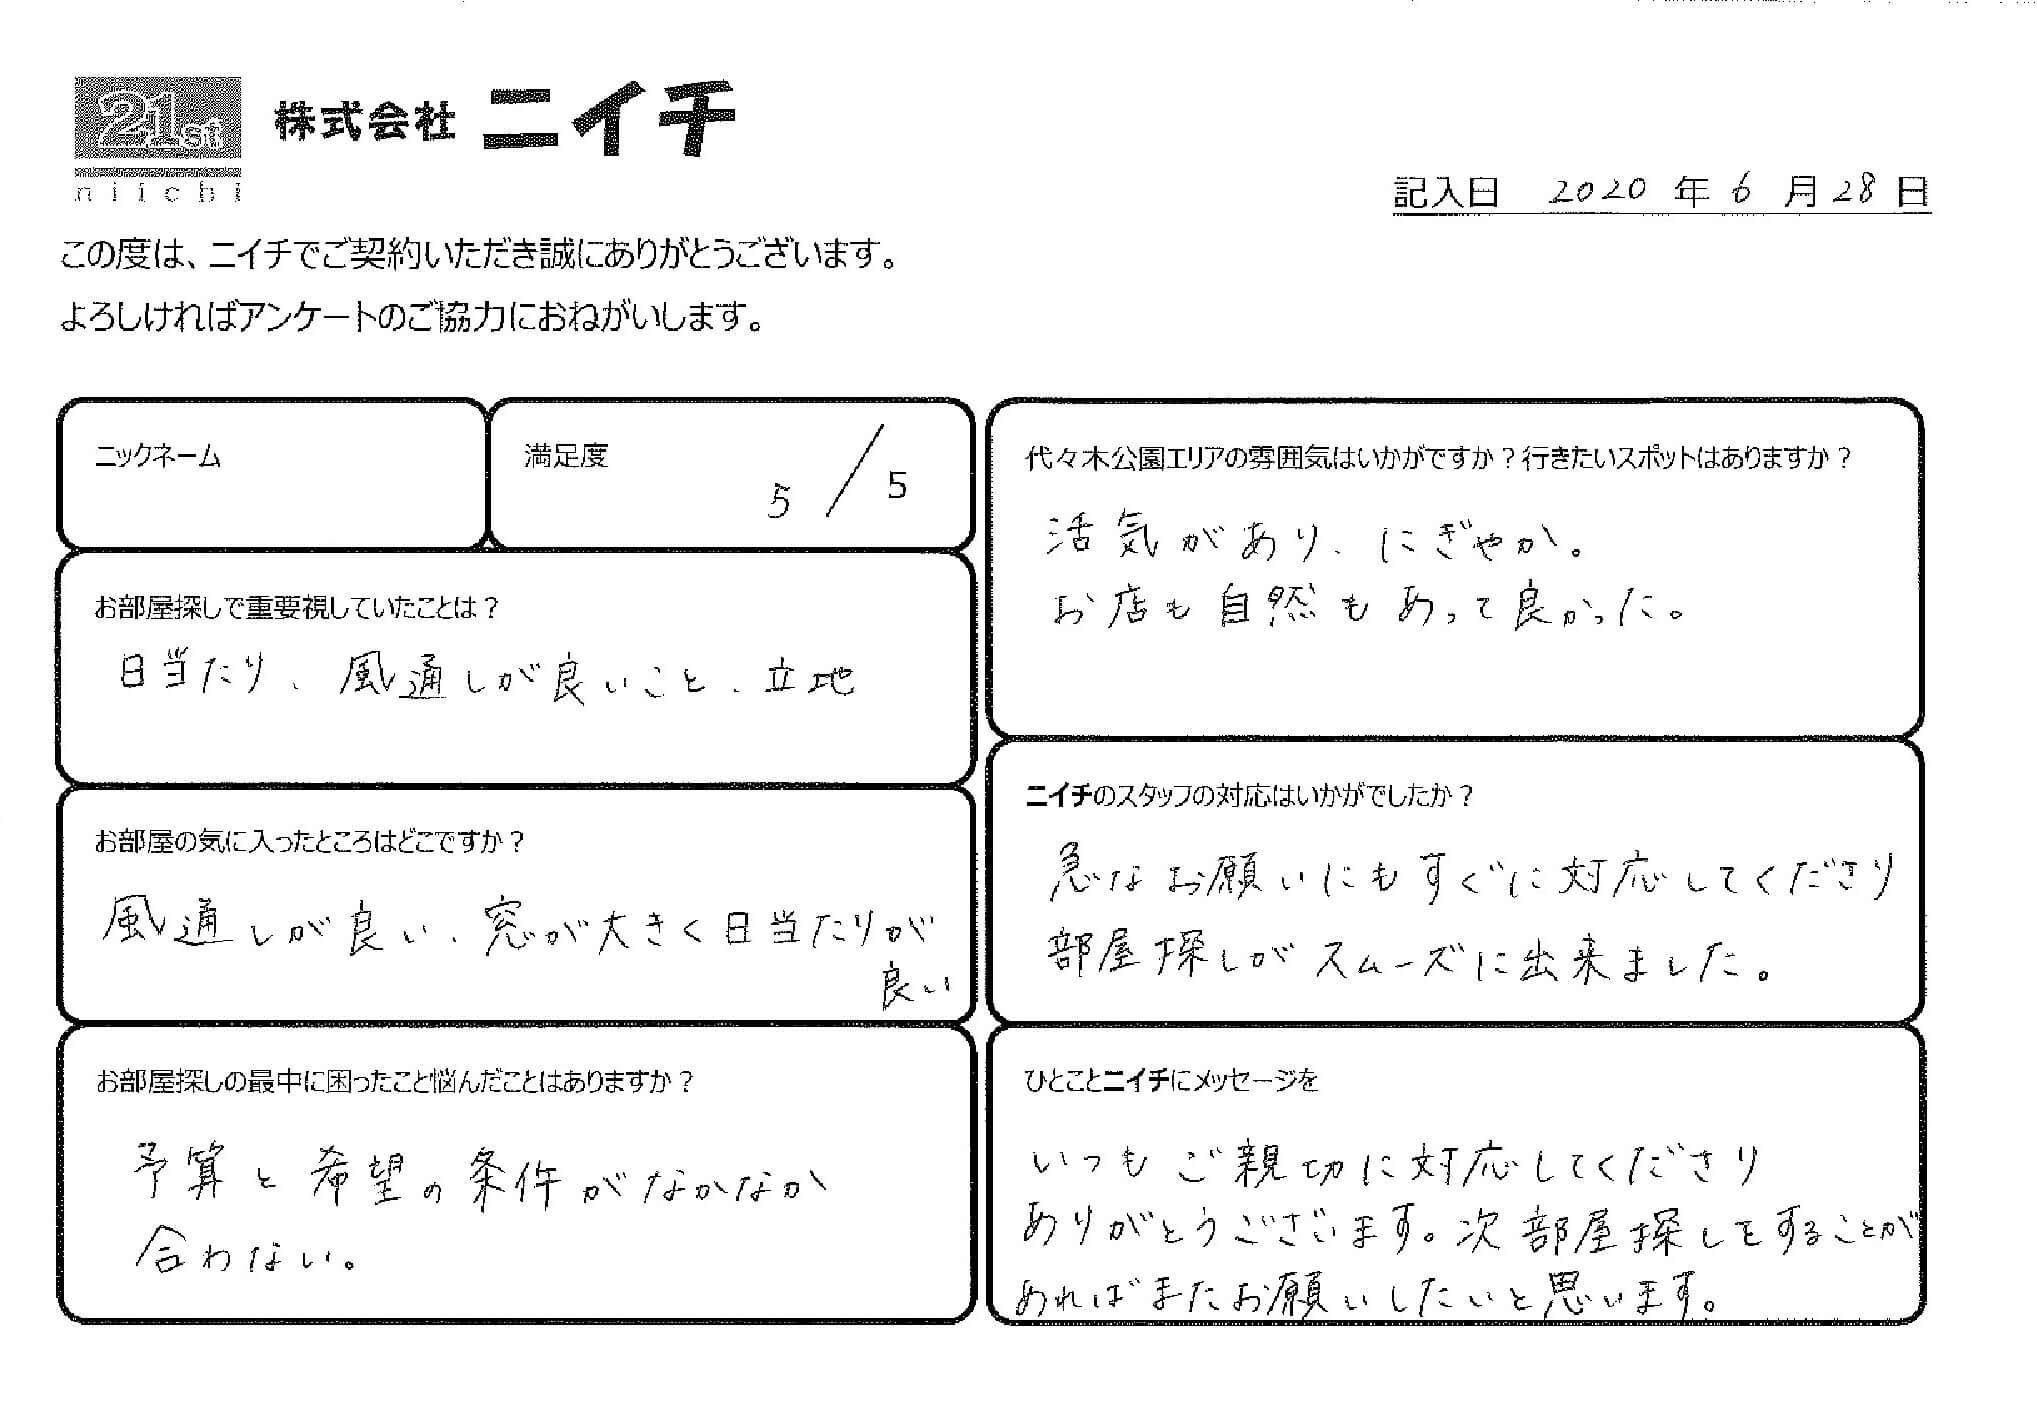 21st
niichi
株式会社 ニイチ
記入日 2020 年 6 月 28 日
この度は、ニイチでご契約いただき誠にありがとうございます。
よろしければアンケートのご協力におねがいします。
ニックネーム
満足度
5/5
お部屋探しで重要視していたことは？
日当たり、風通しが良いこと、立地
お部屋の気に入ったところはどこですか？
風通しが良い、窓が大きく日当たりが
良い
お部屋探しの最中に困ったこと悩んだことはありますか？
予算と希望の条件がなかなか
合わない。
代々木公園エリアの雰囲気はいかがですか？行きたいスポットはありますか？
活気があり、にぎやか。
お店も自然もあって良かった。
ニイチのスタッフの対応はいかがでしたか？
急なお願いにもすぐに対応してくださり
部屋探しがスムーズに出来ました。
ひとことニイチにメッセージを
いつもご親切に対応してくださり
ありがとうございます。次部屋探しをすることが
あればまたお願いしたいと思います。